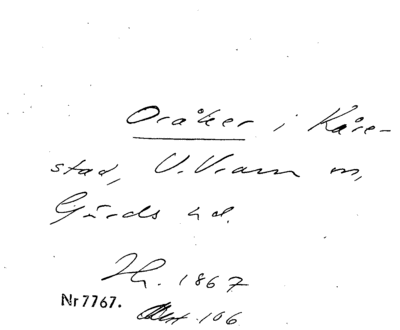 Oråker i Kåre-
stad, V. Vram m,
Gärds hd.
Hr. 1867
Nr 7767.
106